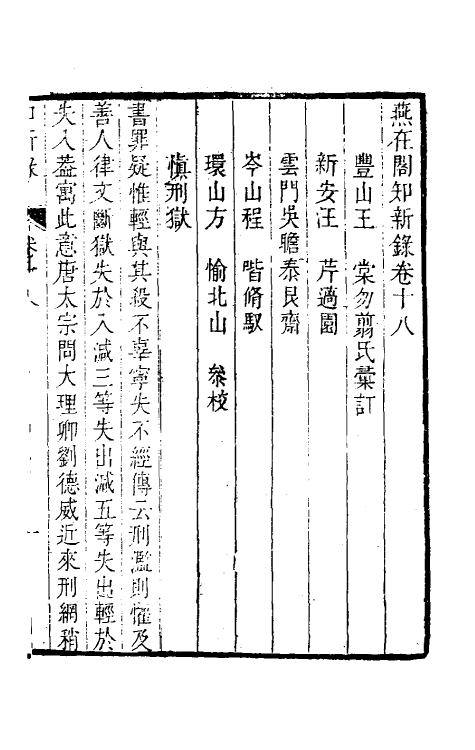 燕在閣知新錄卷十八
豐山王　棠勿翦氏彙訂
新安汪　芹適園
雲門吳瞻泰艮齋
岑山程　喈脩馭
環山方　愉北山　叅校
慎刑獄
書罪疑惟輕與其殺不辜寧失不經傳云刑濫則懼及
善人律文斷獄失於入減三等失出減五等失出輕於
失入葢寓此意唐太宗問大理卿劉德威近來刑網稍